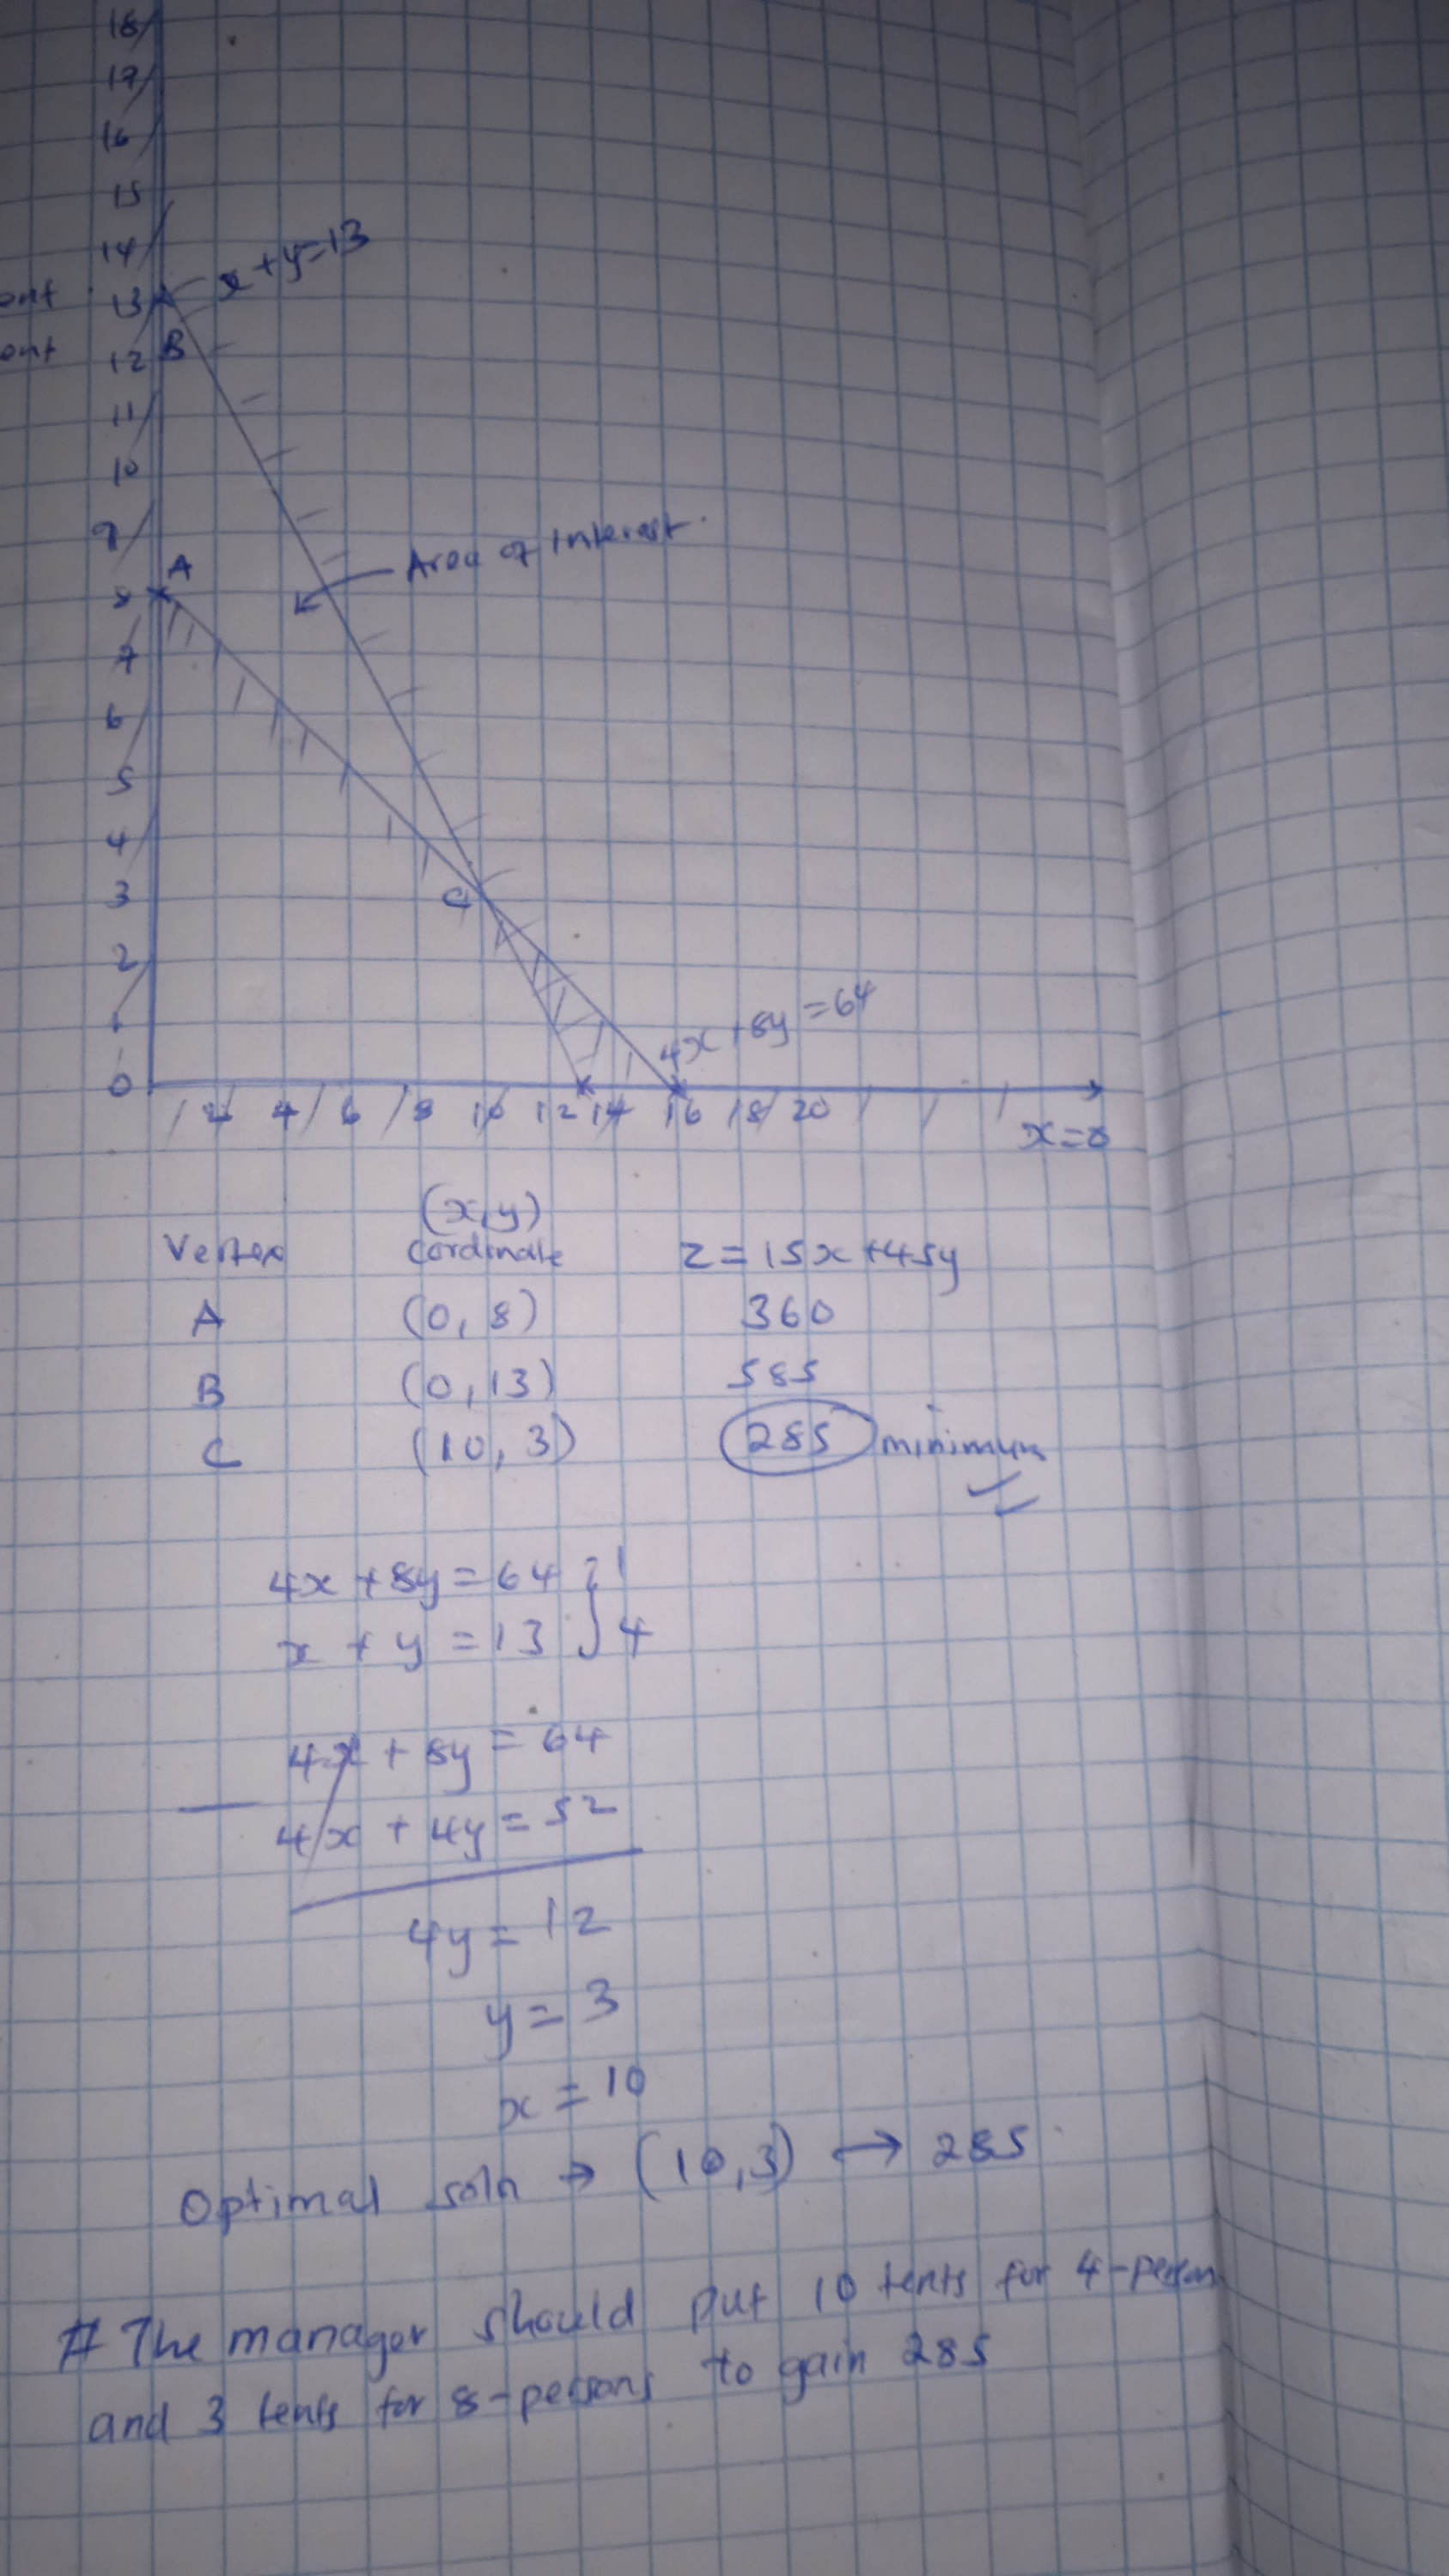 18
17
16
15
14
x+y=13
ont 13
ont 12 B
11
10
9
Area of interest.
A
8
7
6
5
4
3 C
2
1
4x+8y=64
0
2 4 6 8 10 12 14 16 18 20
x=0
(x,y)
Vertex cordinate z=15x+45y
A (0, 8) 360
B (0, 13) 585
C (10, 3) 285 minimum
4x+8y=64 } 1
x + y = 13 } 4
4x + 8y = 64
— 4x + 4y = 52
4y = 12
y = 3
x = 10
Optimal soln → (10,3) → 285
# The manager should put 10 tents for 4-person
and 3 tents for 8-persons to gain 285